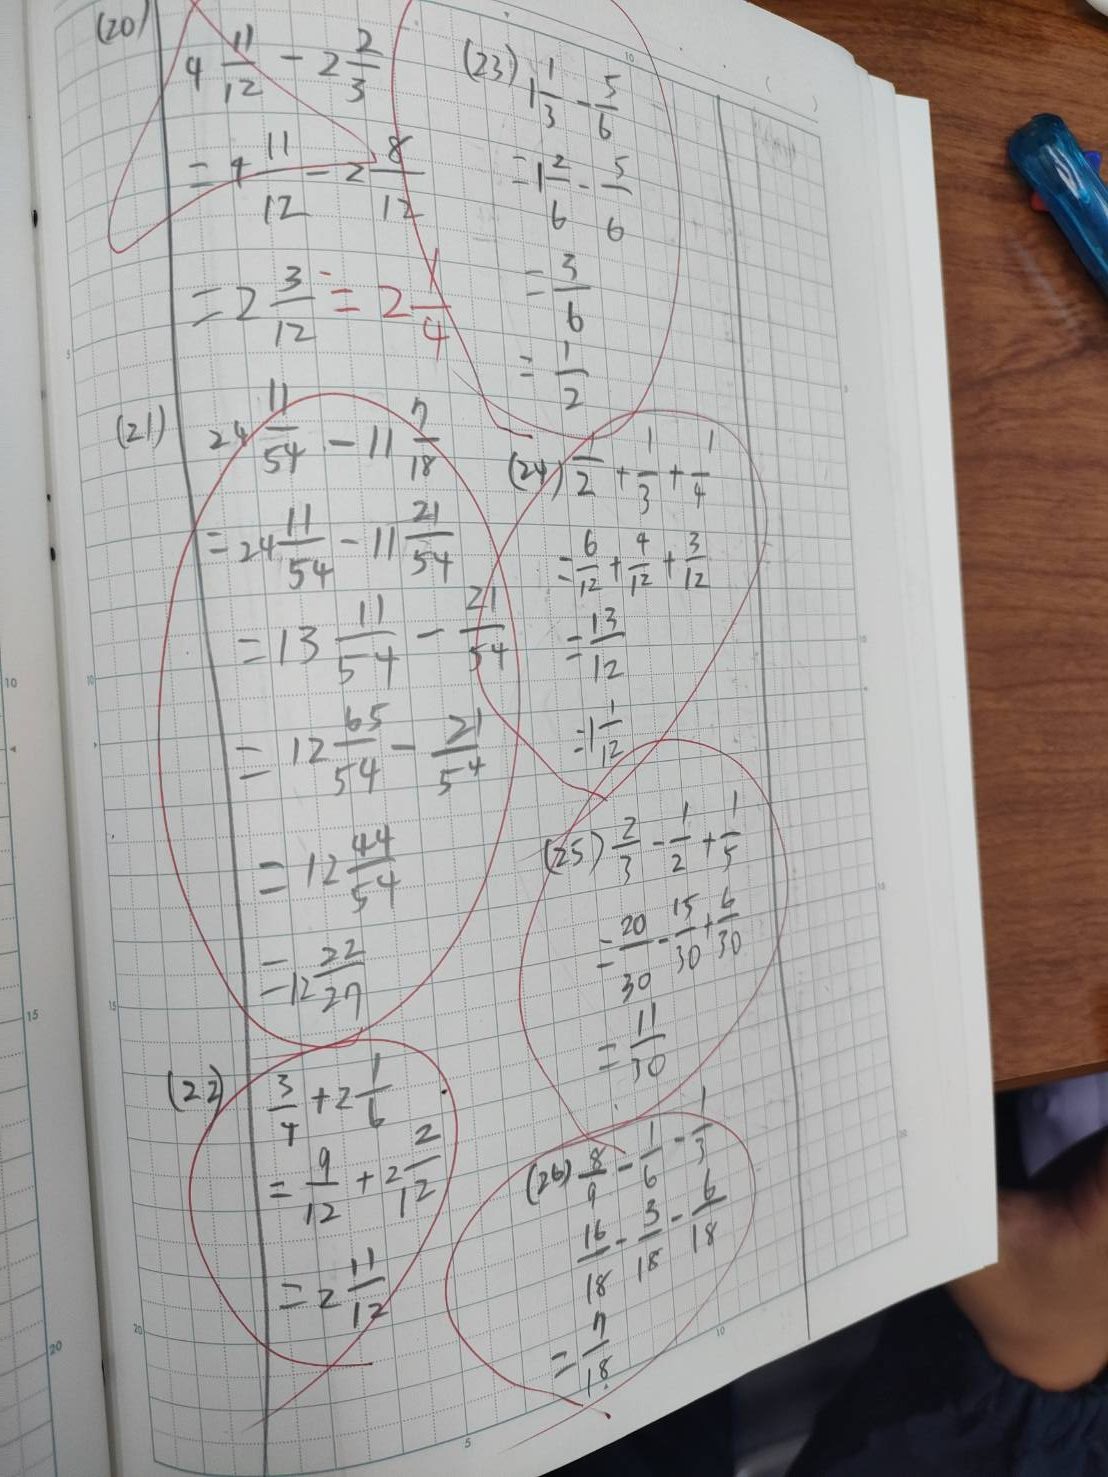 (20) 4 11/12 - 2 2/3
= 4 11/12 - 2 8/12
= 2 3/12 = 2 1/4
(21) 24 11/54 - 11 7/18
= 24 11/54 - 11 21/54
= 13 11/54 - 21/54
= 12 65/54 - 21/54
= 12 44/54
= 12 22/27
(22) 3/4 + 2 1/6
= 9/12 + 2 2/12
= 2 11/12
(23) 1 1/3 - 5/6
= 1 2/6 - 5/6
= 3/6
= 1/2
(24) 1/2 + 1/3 + 1/4
= 6/12 + 4/12 + 3/12
= 13/12
= 1 1/12
(25) 2/3 - 1/2 + 1/5
= 20/30 - 15/30 + 6/30
= 11/30
(26) 8/9 - 1/6 - 1/3
16/18 - 3/18 - 6/18
= 7/18
5
10
15
20
10
15
20
5
10
10
5
10